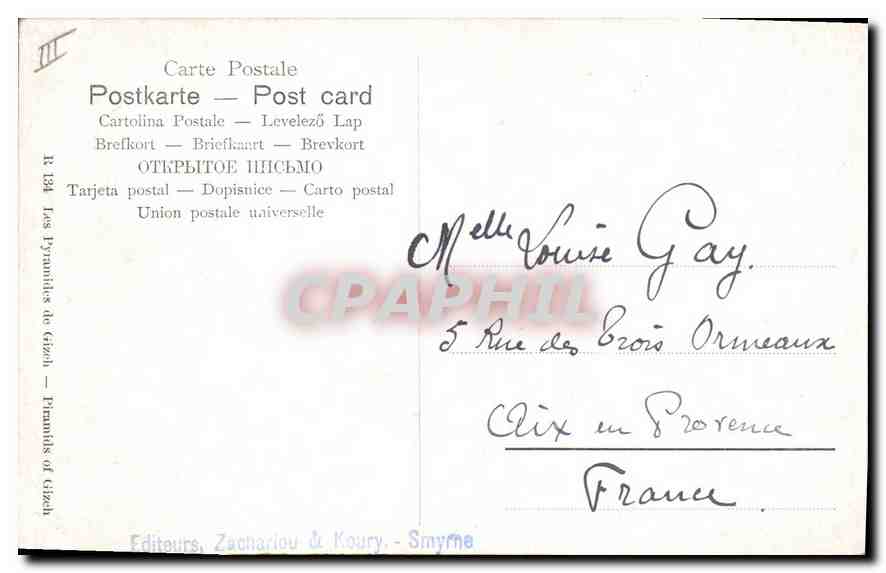 III
Carte Postale
Postkarte — Post card
Cartolina Postale — Levelező Lap
Brefkort — Briefkaart — Brevkort
ОТКРЫТОЕ ПИСЬМО
Tarjeta postal — Dopisnice — Carto postal
Union postale universelle
R 134 Les Pyramides de Gizeh — Piramids of Gizeh
Melle Louise Gay.
5 Rue des Trois Ormeaux
Aix en Provence
France.
CPAPHIL
Editeurs, Zachariou & Koury. - Smyrne